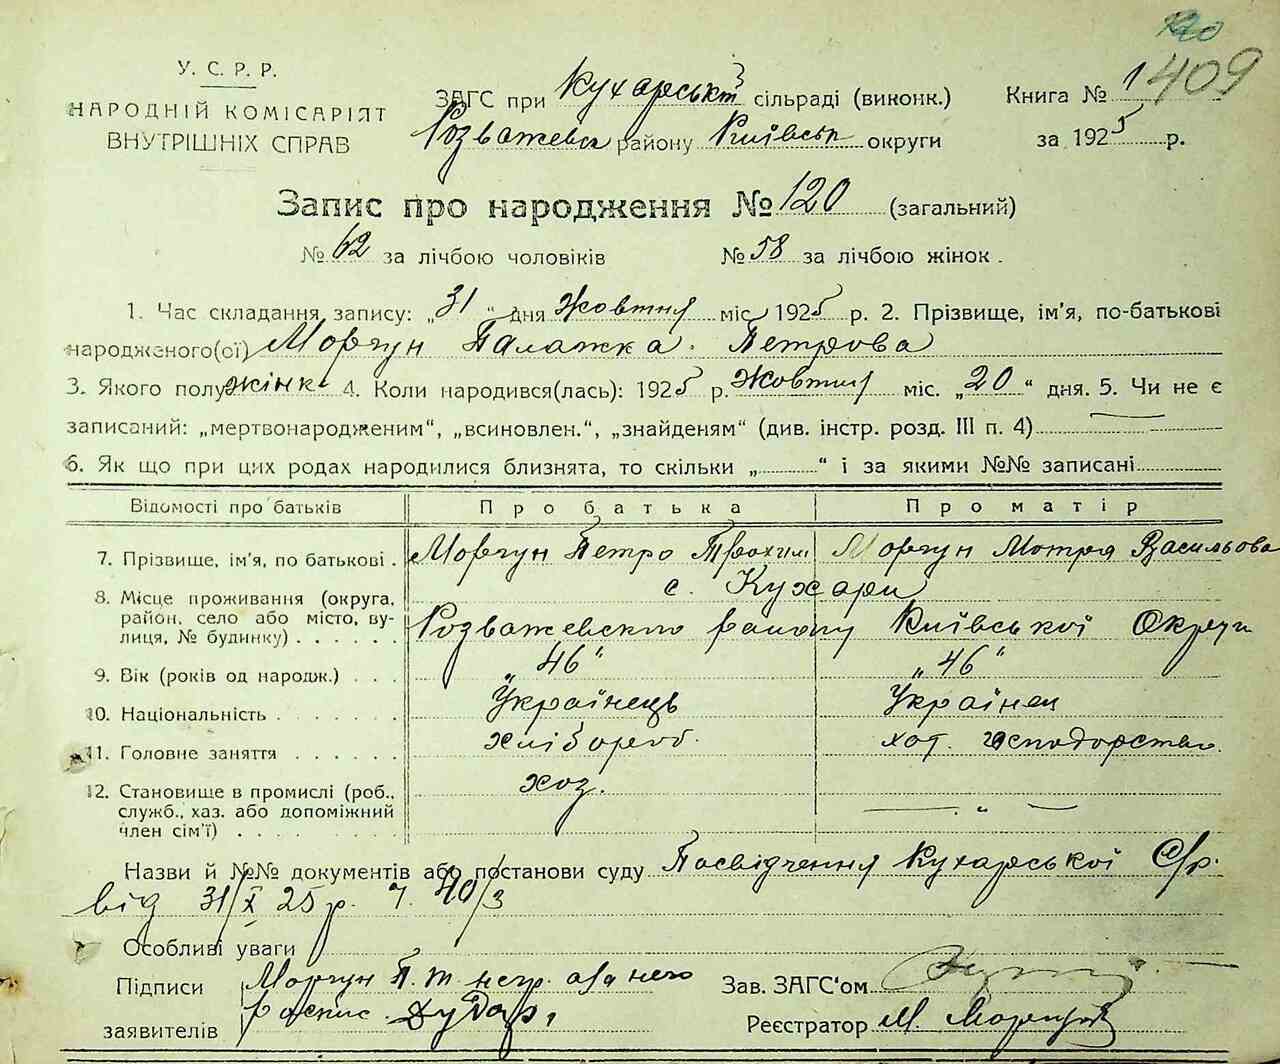 120
409
У. С. Р. Р.
НАРОДНІЙ КОМІСАРІЯТ
ВНУТРІШНІХ СПРАВ
ЗАГС при Кухарськ сільраді (виконк.) Книга № 1
Розважевськ району Київськ округи за 1925 р.
Запис про народження № 120 (загальний)
№ 62 за лічбою чоловіків № 58 за лічбою жінок.
1. Час складання запису: „31“ дня Жовтня міс. 1925 р. 2. Прізвище, ім'я, по-батькові
народженого(ої) Моргун Палажка Петрова
3. Якого полу жінк 4. Коли народився(лась): 1925 р. Жовтня міс. „20“ дня. 5. Чи не є
записаний: „мертвонародженим“, „всиновлен.“, „знайденям“ (див. інстр. розд. III п. 4)
6. Як що при цих родах народилися близнята, то скільки „ “ і за якими №№ записані
Відомості про батьків Про батька Про матір
7. Прізвище, ім'я, по батькові . Моргун Петро Трохим Моргун Мотря Васильова
8. Місце проживання (округа, с. Кухари
район, село або місто, ву- Розважевского району Київської Округи
лиця, № будинку)
9. Вік (років од народж.) „46“ „46“
10. Національність Українець Українец
11. Головне заняття хлібороб. хат. господорство.
12. Становище в промислі (роб., хоз. — „ —
служб., хаз. або допоміжний
член сім'ї)
Назви й №№ документів або постанови суду Посвідчення Кухарської С/р.
від 31/X 25 р. ч. 40/3
Особливі уваги
Підписи Моргун П. Т. негр. а за него Зав. ЗАГС'ом
заявителів роспис. Реєстратор М.